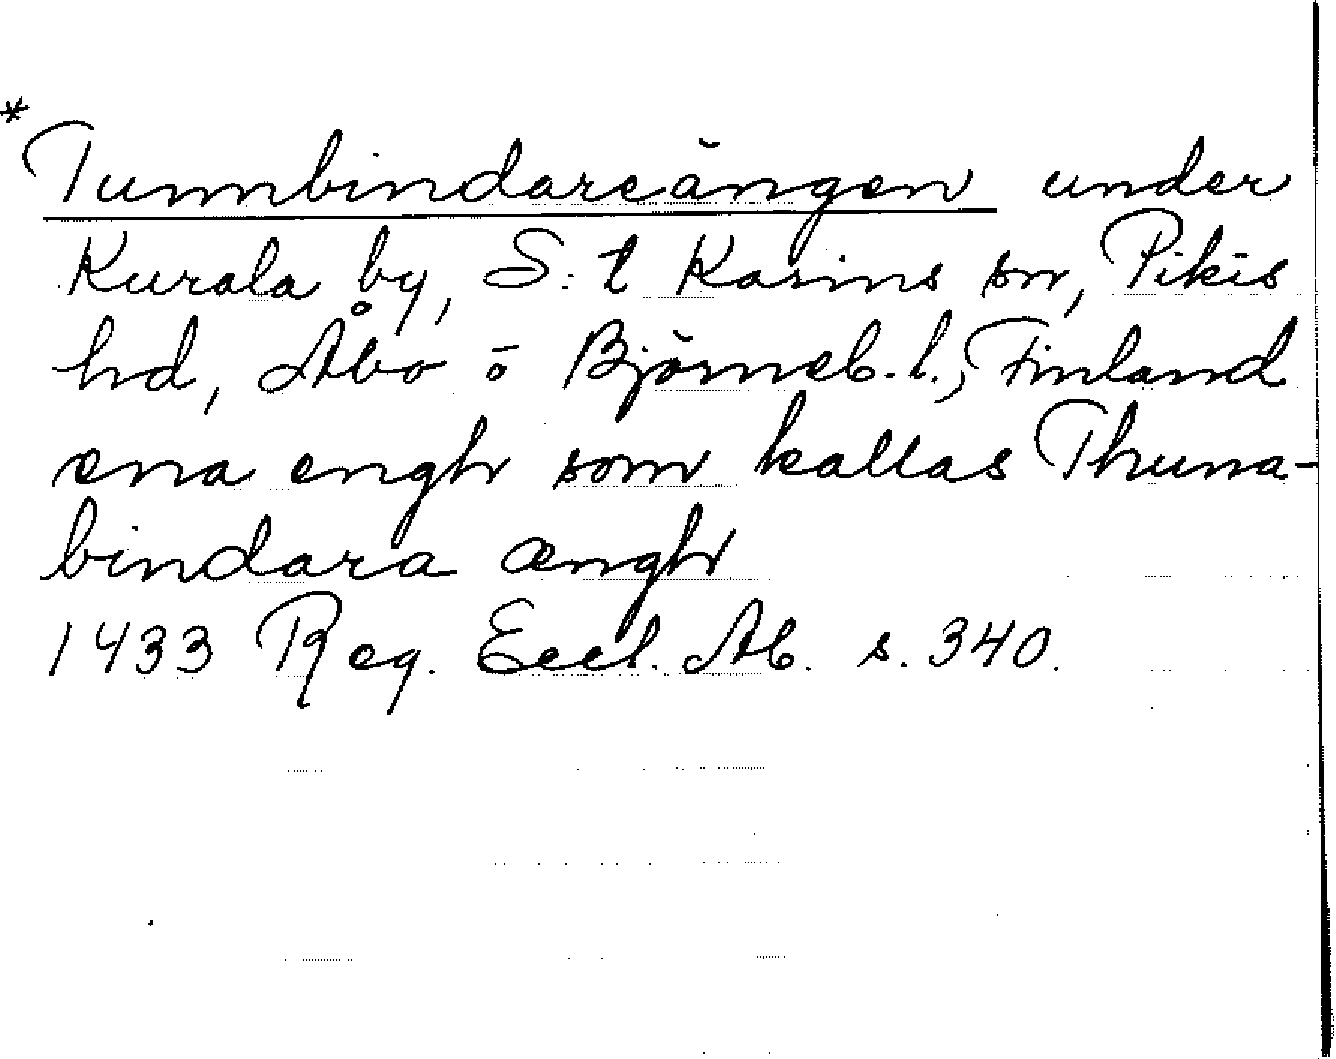 *Tunnbindareängen under
Kurala by, S:t Karins sn, Pikis
hd, Åbo o Björneb. l., Finland
ena engh som kallas Thuna-
bindara ængh
1433 Reg. Eccl. Ab. s. 340.